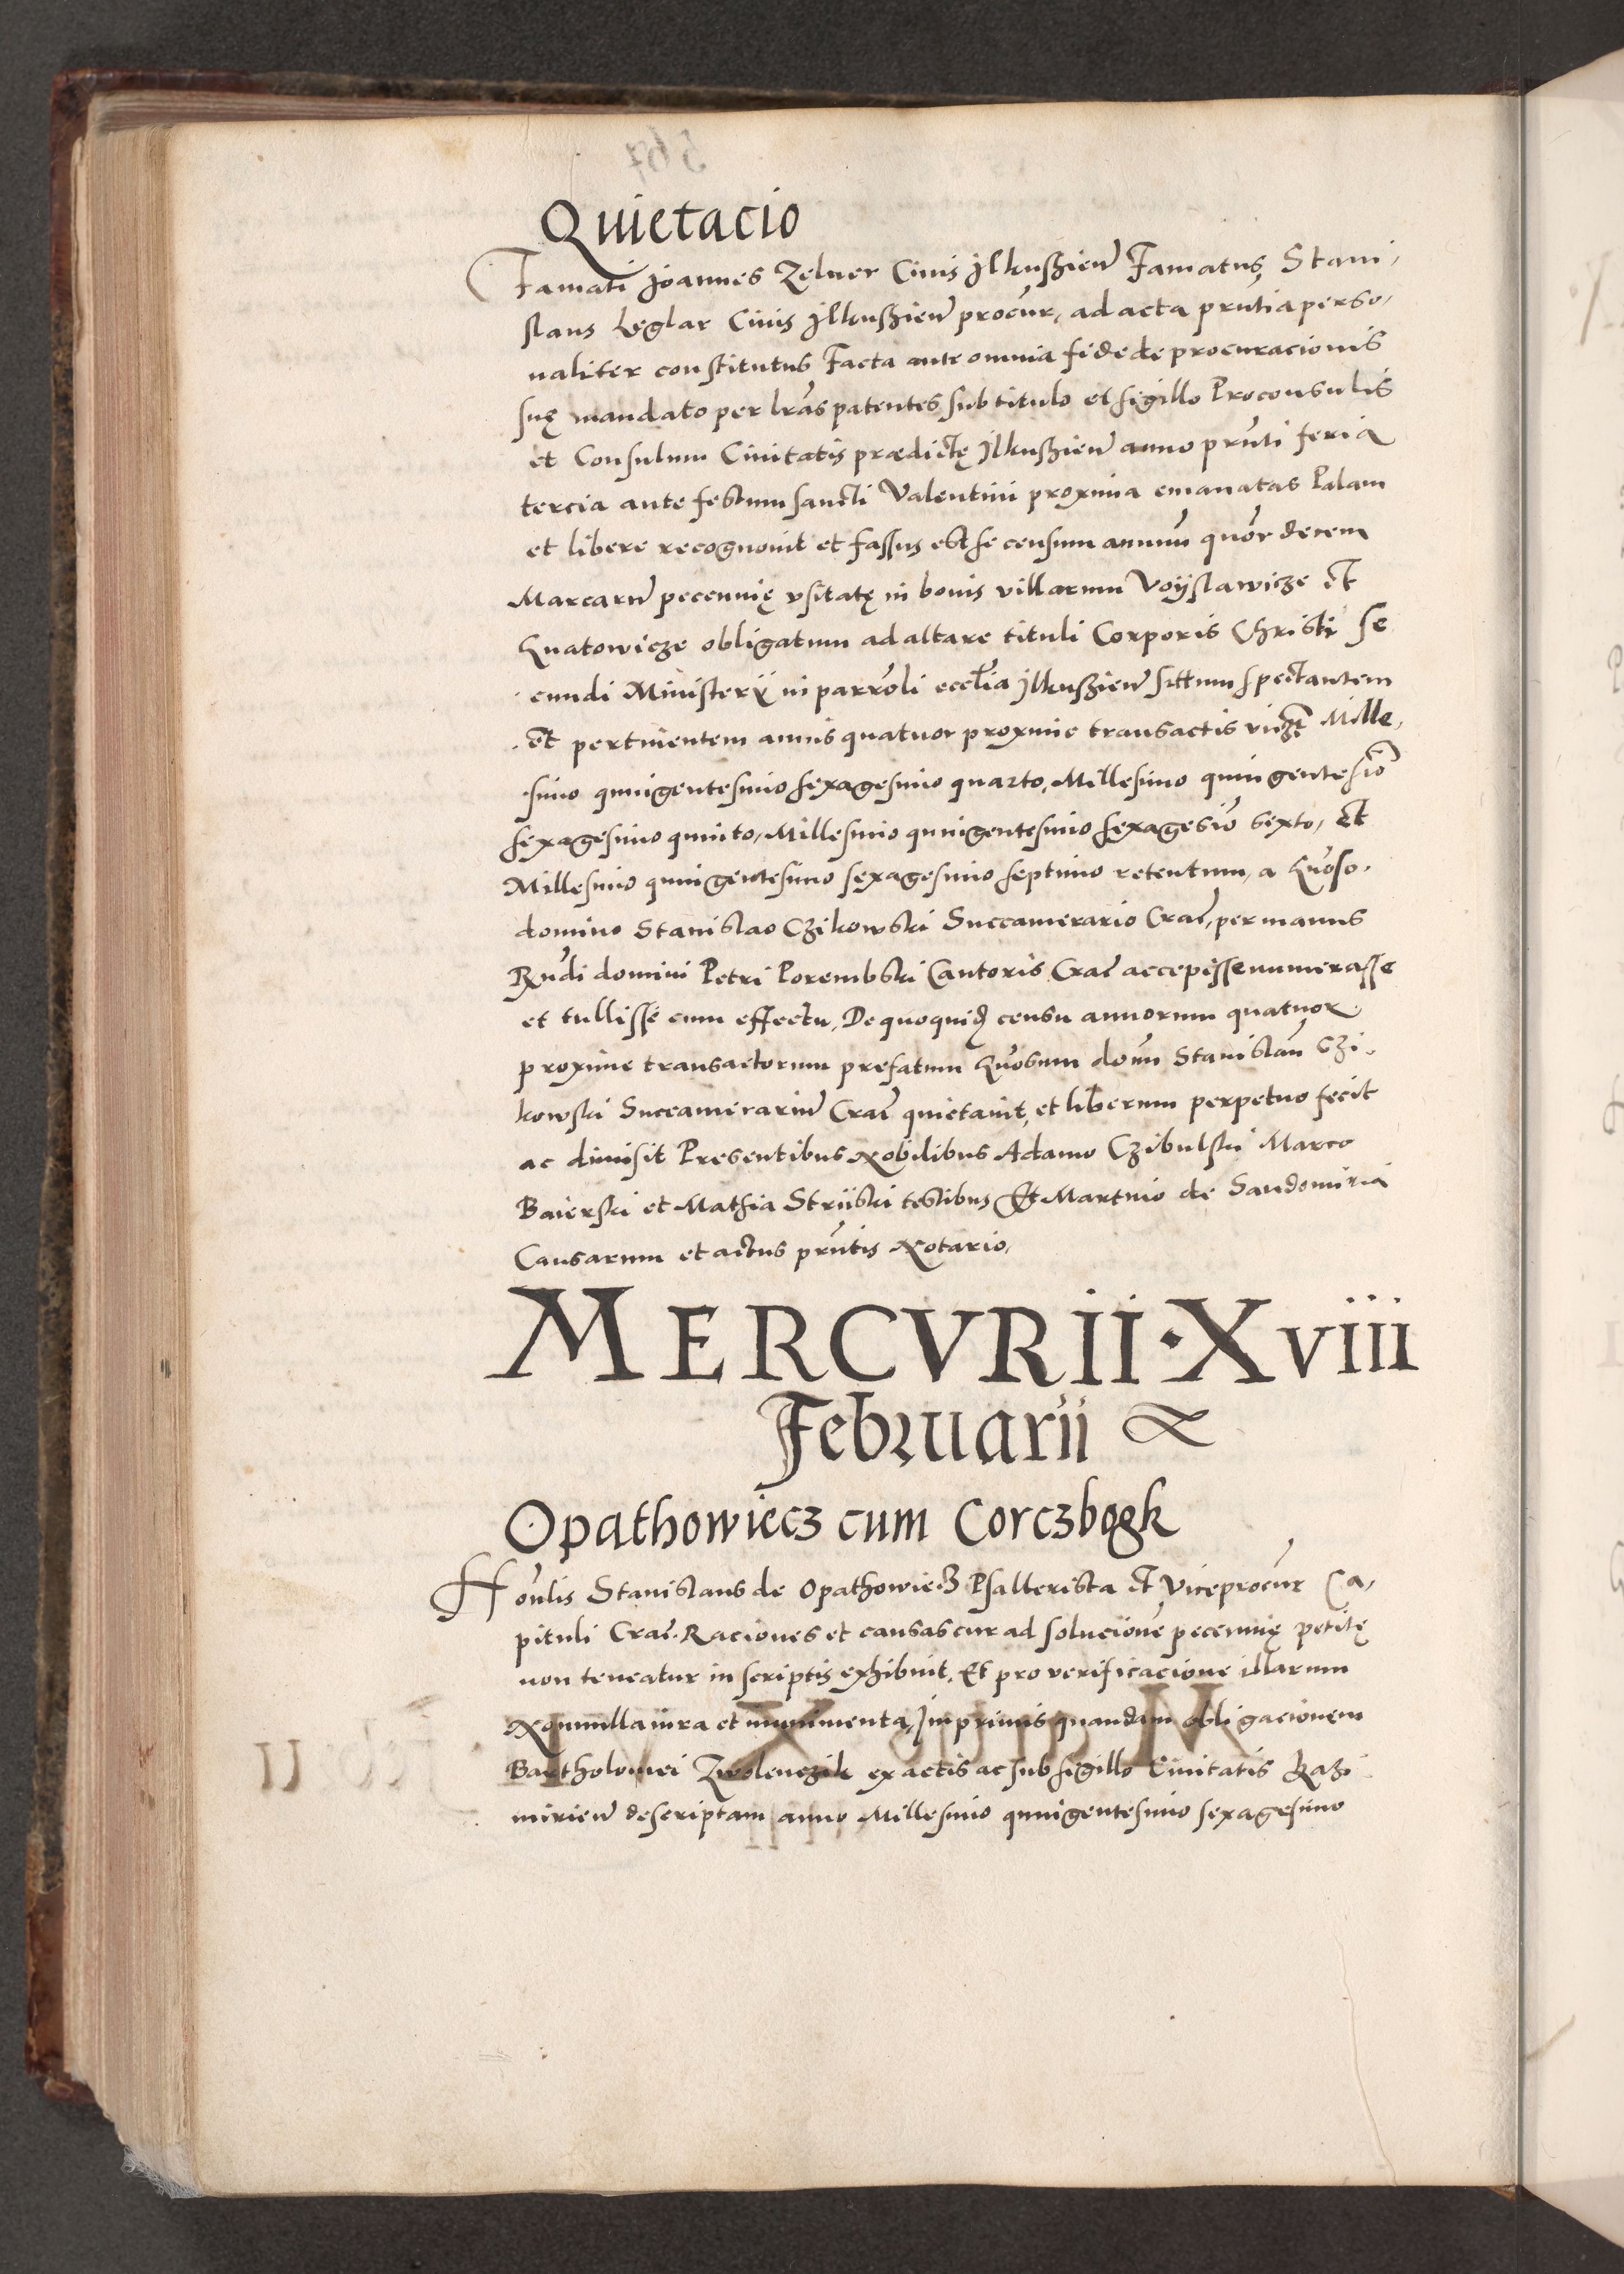 Quietacio
Famati Joannes Zelner Civis Jlkuszien̄ Famatus Stani,
slaus Keglar Civis Jlkuszien̄ procur̄, ad acta pr̄ntia perso,
naliter constitutus Facta ante omnia fide de procuracionis
suę mandato per lr̄as patentes sub titulo et sigillo Proconsulis
et Consulum Civitatis prædictę Jlkuszien̄ anno pr̄nti feria
tercia ante festum sancti Valentini proxima emanatas Palam
et libere recognovit et fassus est se censum annuū quor̄ decem
Marcarum̄ pecennię vsitatę in bonis villarum Voijslawicze et
Kwatowicze obligatum ad altare tituli Corporis Christi se
cundi Ministerij in parro͞li eccl̄ia Jlkusziēn sittum spectantem
et pertinentem annis quatuor proxime transactis vidz̄t Mille,
simo quingentesimo sexagesimo quarto, Millesimo quingentesīo
sexagesimo quinto, Millesimo quingentesimo sexagesīo sexto, et
Millesimo quingentesimo sexagesimo septimo retentum, a Gn̄oso.
domino Stanislao Czikowski Succamerario Crac̄, per manus
Rn̄di domini Petri Porembski Cantoris Crac̄ accepisse numerasse
et tullisse cum effectu, De quoquidē censu annorum quatuor
proxime transactorum prefatum Gn̄osum dom̄ Stanislaū Czi,
kowski Succamerariū Crac̄ quietavit, et liberum perpetuo fecit
ac dimisit Presentibus Nobilibus Adamo Czibulski Marco
Baierski et Mathia Striiski testibus Et Martino de Sandomiria
Causarum et actus pr̄ntis Notario,
MERCVRII · Xviii
Februarii
Opathowiecz cum Corczbogk
Hon̄lis Stanislaus de Opathowiecz Psalterista et viceprocur̄ Ca,
pituli Crac̄. Raciones et causas cur ad solucionē pecennię petitę
non teneatur in scriptis exhibuit, Et pro verificacione illarum
Nonnulla iura et munimenta, Jmprimis quandam obligacionem
Bartholomei Zwolenczik ex actis ac sub sigillo Civitatis Kazi
mirien̄ descriptam anno Millesimo quingentesimo sexagesimo